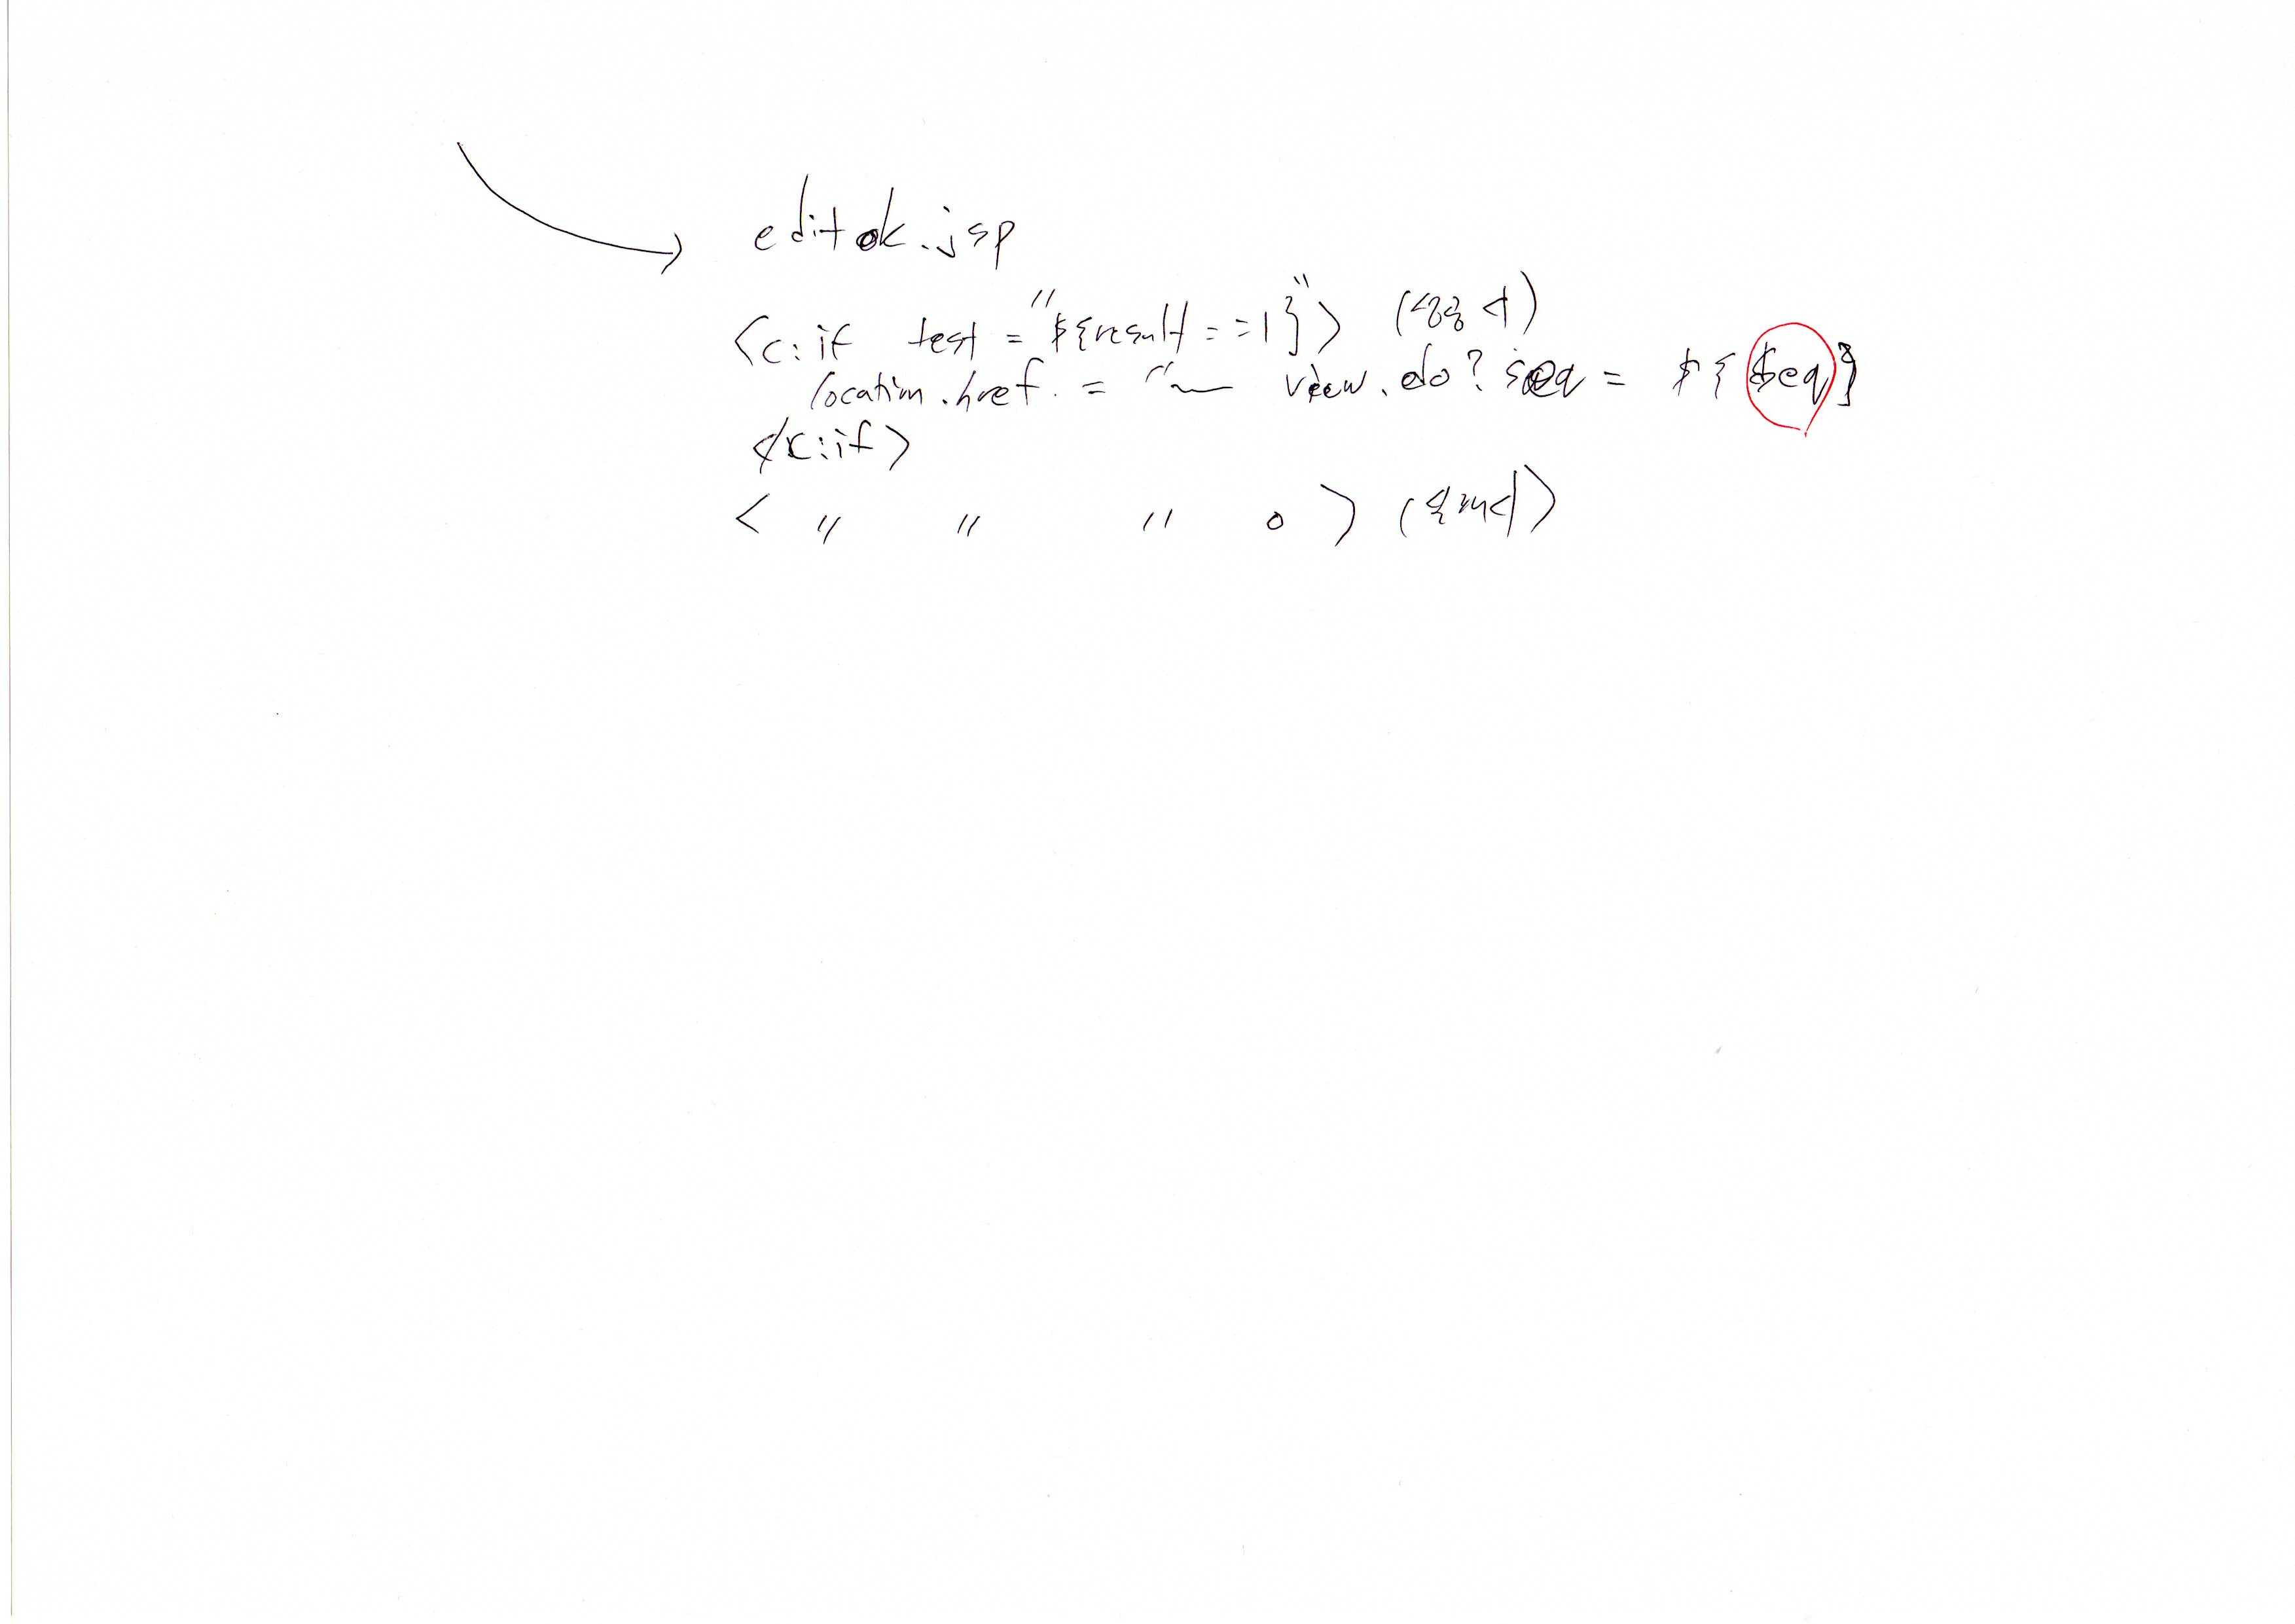 editok.jsp
<c:if test = "${result==1}"> (성공시)
location.href. = "~ view.do? seq = ${seq}
</c:if>
< " " " 0 > (실패시)